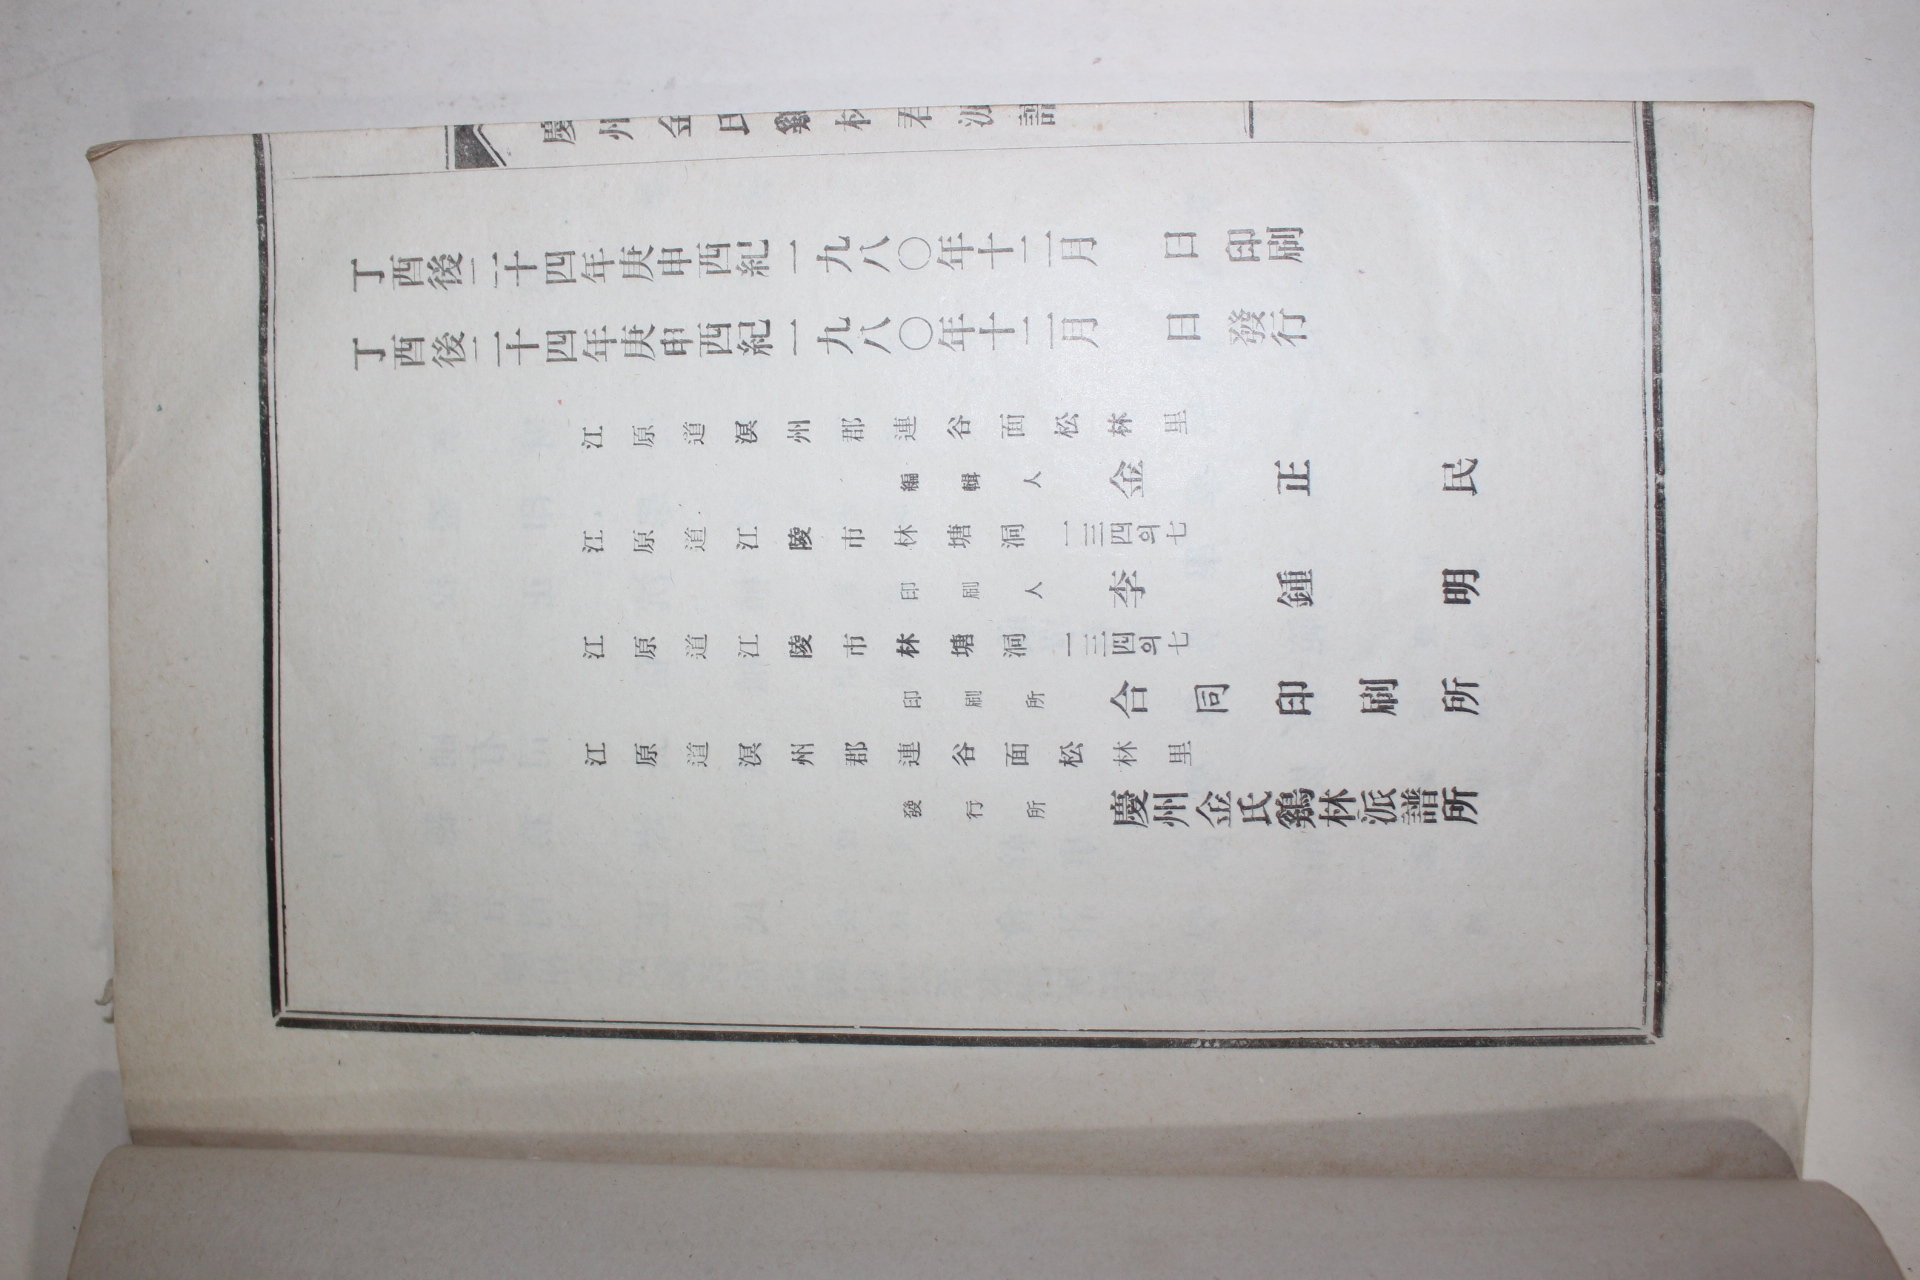 慶州金氏鷄林君派譜
丁酉後二十四年庚申西紀一九八〇年十二月 日印刷
丁酉後二十四年庚申西紀一九八〇年十二月 日發行
江原道溟州郡連谷面松林里
編輯人 金正民
江原道江陵市林塘洞一三四의七
印刷人 李鍾明
江原道江陵市林塘洞一三四의七
印刷所 合同印刷所
江原道溟州郡連谷面松林里
發行所 慶州金氏鷄林派譜所